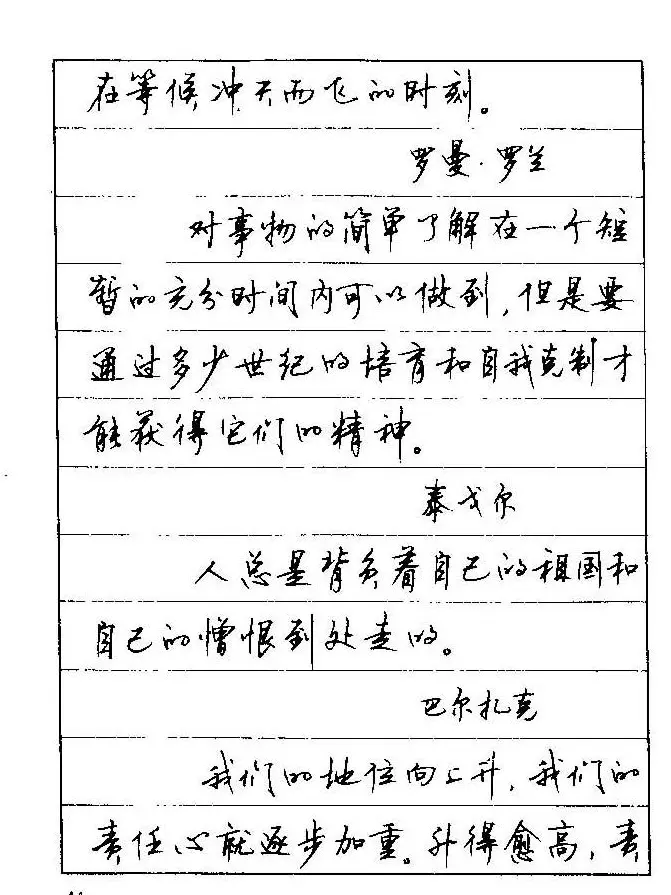 在等候冲天而飞的时刻。
罗曼·罗兰
对事物的简单了解在一个短
暂的充分时间内可以做到,但是要
通过多少世纪的培育和自我克制才
能获得它们的精神。
泰戈尔
人总是背负着自己的祖国和
自己的憎恨到处走的。
巴尔扎克
我们的地位向上升,我们的
责任心就逐步加重。升得愈高,责